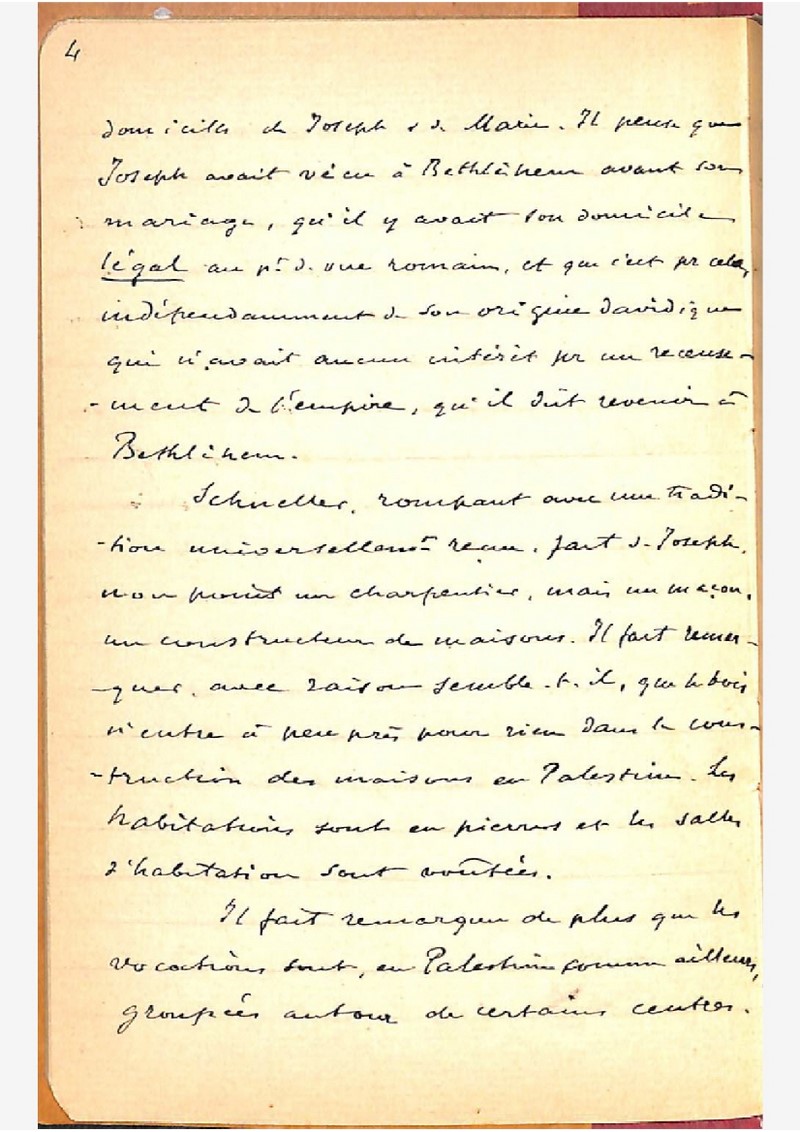 4
domiciles de Joseph & de Marie. Il pense que
Joseph avait vécu à Bethléhem avant son
mariage, qu'il y avait son domicile
légal au pt d. vue romain, et que c'est pr cela,
indépendamment de son origine davidique
qui n'avait aucun intérêt pr un recense-
-ment de l'empire, qu'il dût revenir à
Bethléhem.
Schneller, rompant avec une tradi-
-tion universellemt reçue, fait d. Joseph,
non point un charpentier, mais un maçon,
un constructeur de maisons. Il fait remar-
-quer, avec raison semble-t-il, que le bois
n'entre à peu près pour rien dans la cons-
-truction des maisons en Palestine. Les
habitations sont en pierres et les salles
d'habitation sont voûtées.
Il fait remarquer de plus que les
vocations sont, en Palestine comme ailleurs,
groupées autour de certains centres.